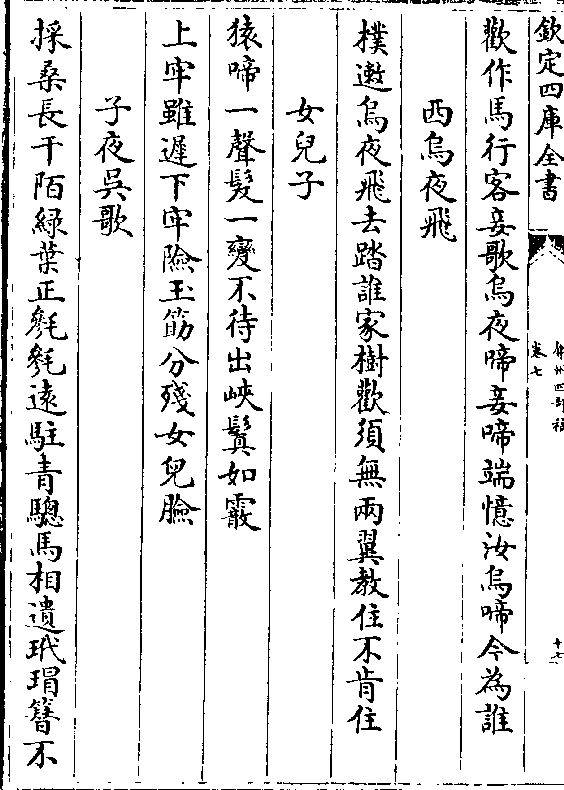 欽定四庫全書
弇州四部稿
卷七
十七
歡作馬行客妾歌烏夜啼妾啼端憶汝烏啼今為誰
西烏夜飛
樸遬烏夜飛去踏誰家樹歡須無兩翼教住不肯住
女兒子
猿啼一聲髮一變不待出峽鬢如霰
上牢雖遲下牢險玉筯分殘女兒臉
子夜吳歌
採桑長干陌綠葉正毿毿遠駐青驄馬相遺玳瑁簪不